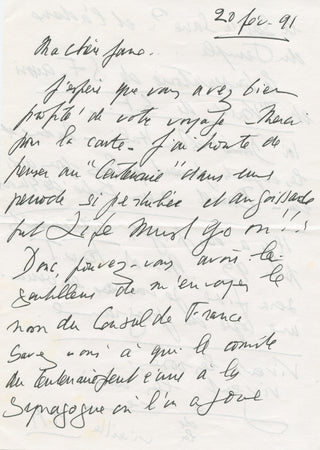 20 fév. 91
Ma chère Jane.
J'espère que vous avez bien
profité de votre voyage - Merci
pour la carte - J'ai honte de
penser au "Centenaire" dans une
periode si perturbée et angoissante
but Life Must Go on!!!
Donc, pouvez-vous avoir la
gentillesse de m'envoyer le
nom du Consul de France
Savez vous à qui le comité
du Centenaire peut écrire à la
Synagogue où l'on a joué